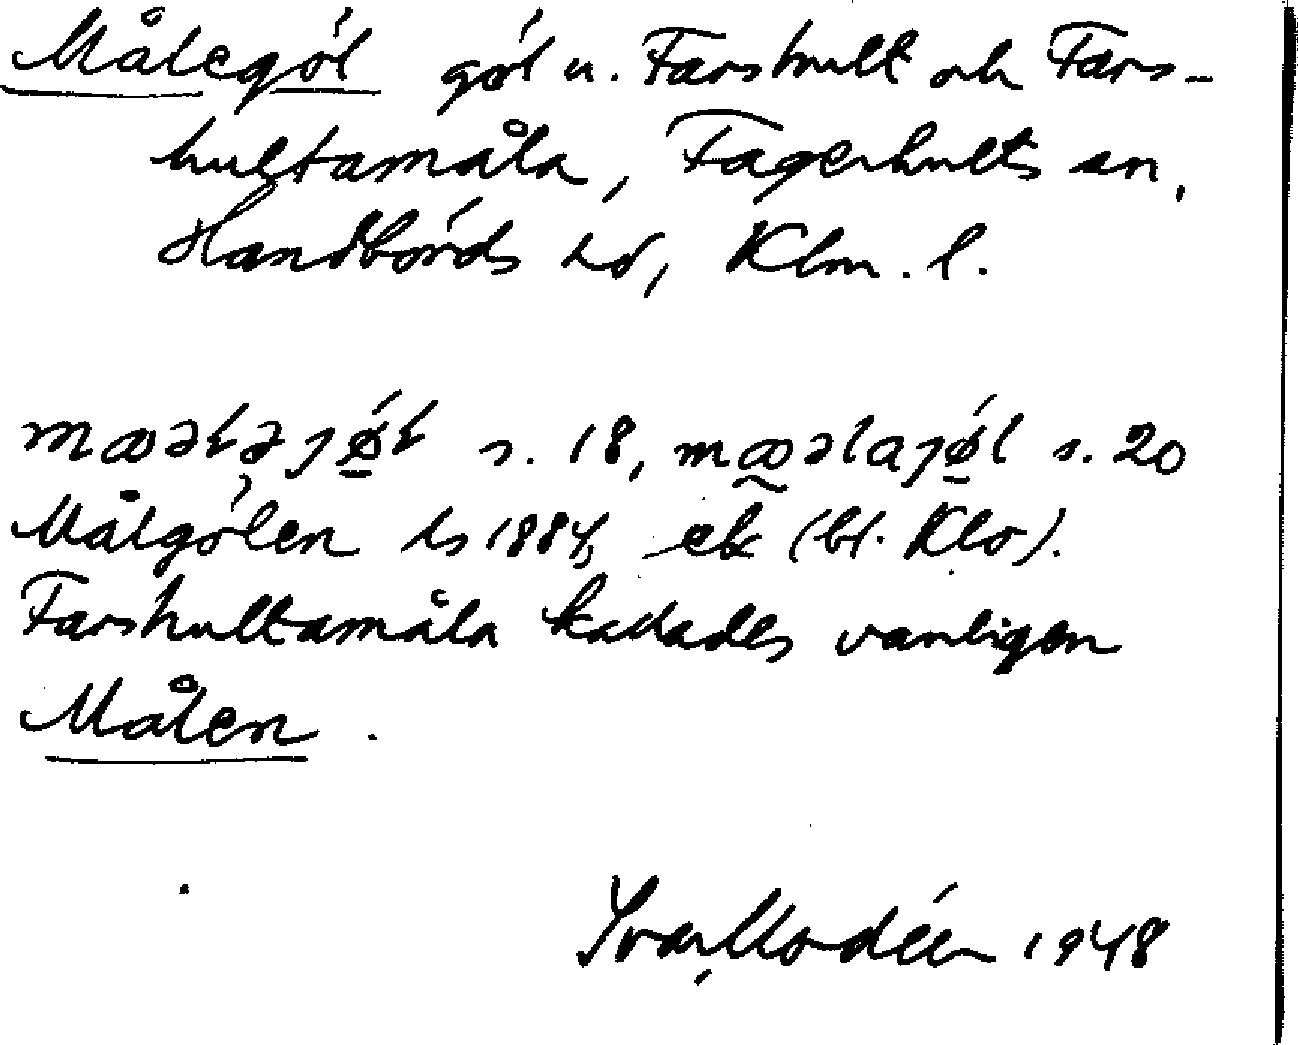 Målegöl göl n. Farshult och Fars-
hultamåla, Fagerhults sn,
Handbörds hd, Klm. l.
s. 18, s. 20
Målgölen ls 1884, ek (bl. Klo).
Farshultamåla kallades vanligen
Målen.
Ivar Modéer 1948